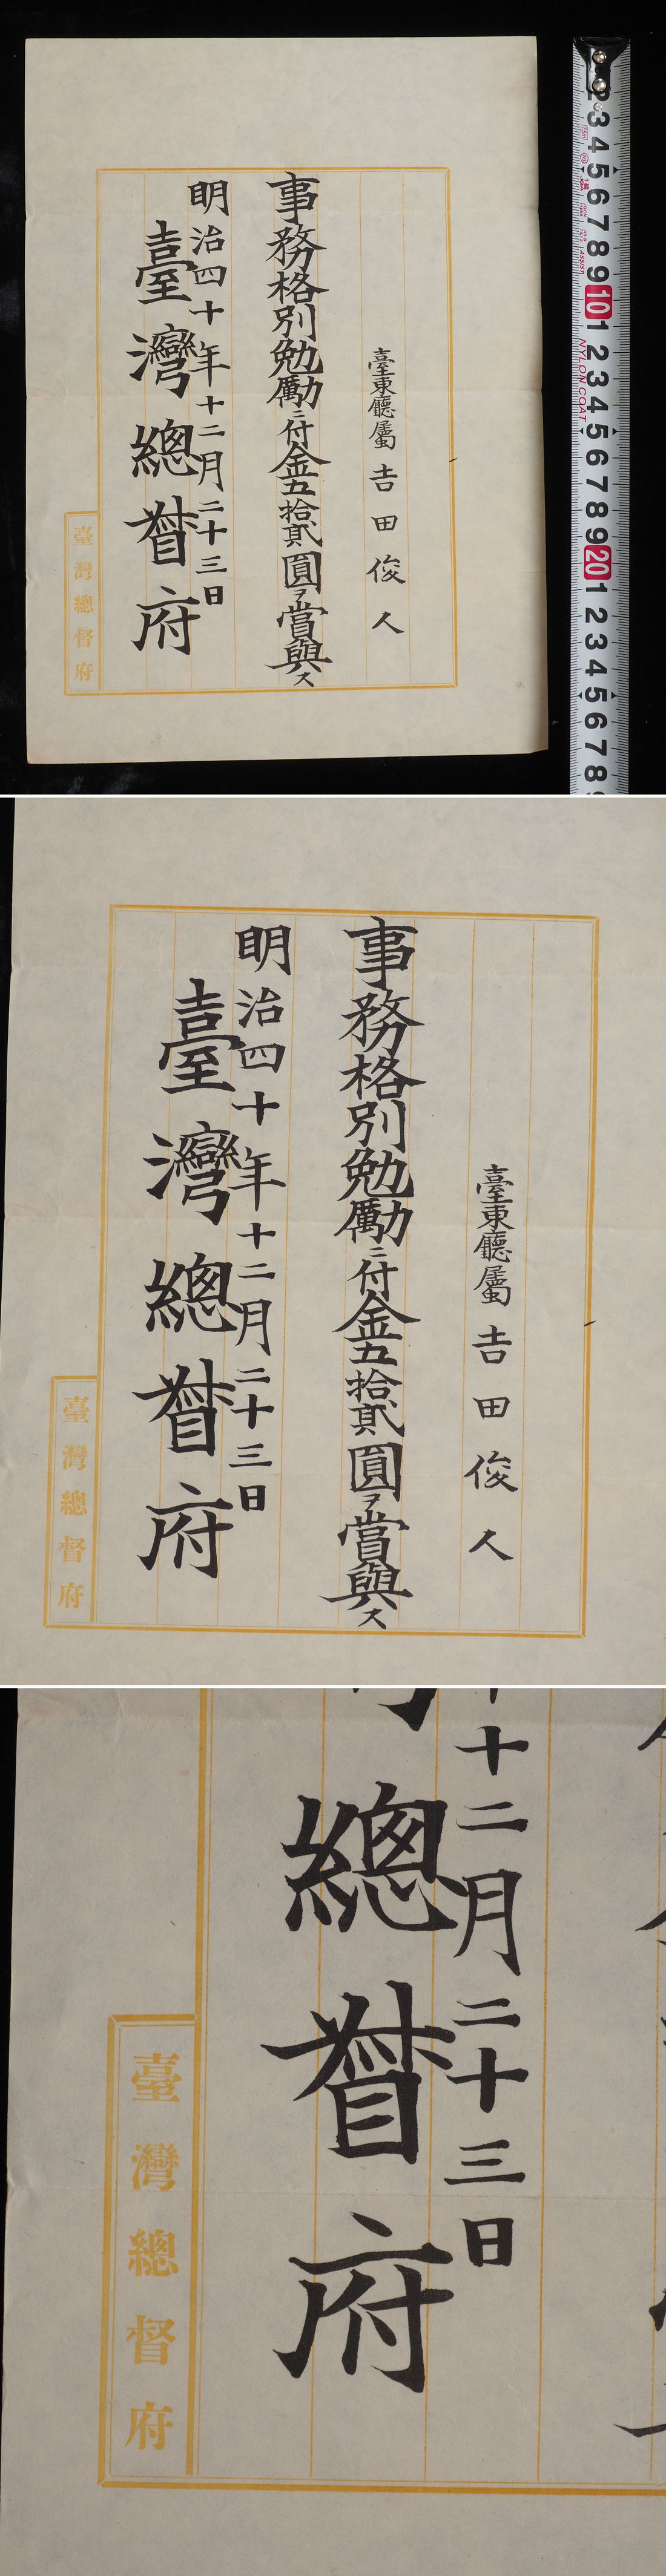 臺東廳屬 吉田俊人
事務格別勉勵ニ付金五拾貳圓ヲ賞與ス
明治四十年十二月二十三日
臺灣總督府
臺灣總督府
2
3
4
5
6
7
8
9
10
1
2
3
4
5
6
7
8
9
20
1
2
3
4
5
6
7
8
NYLON COAT
ASSIST
臺東廳屬 吉田俊人
事務格別勉勵ニ付金五拾貳圓ヲ賞與ス
明治四十年十二月二十三日
臺灣總督府
臺灣總督府
十二月二十三日
總督府
臺灣總督府